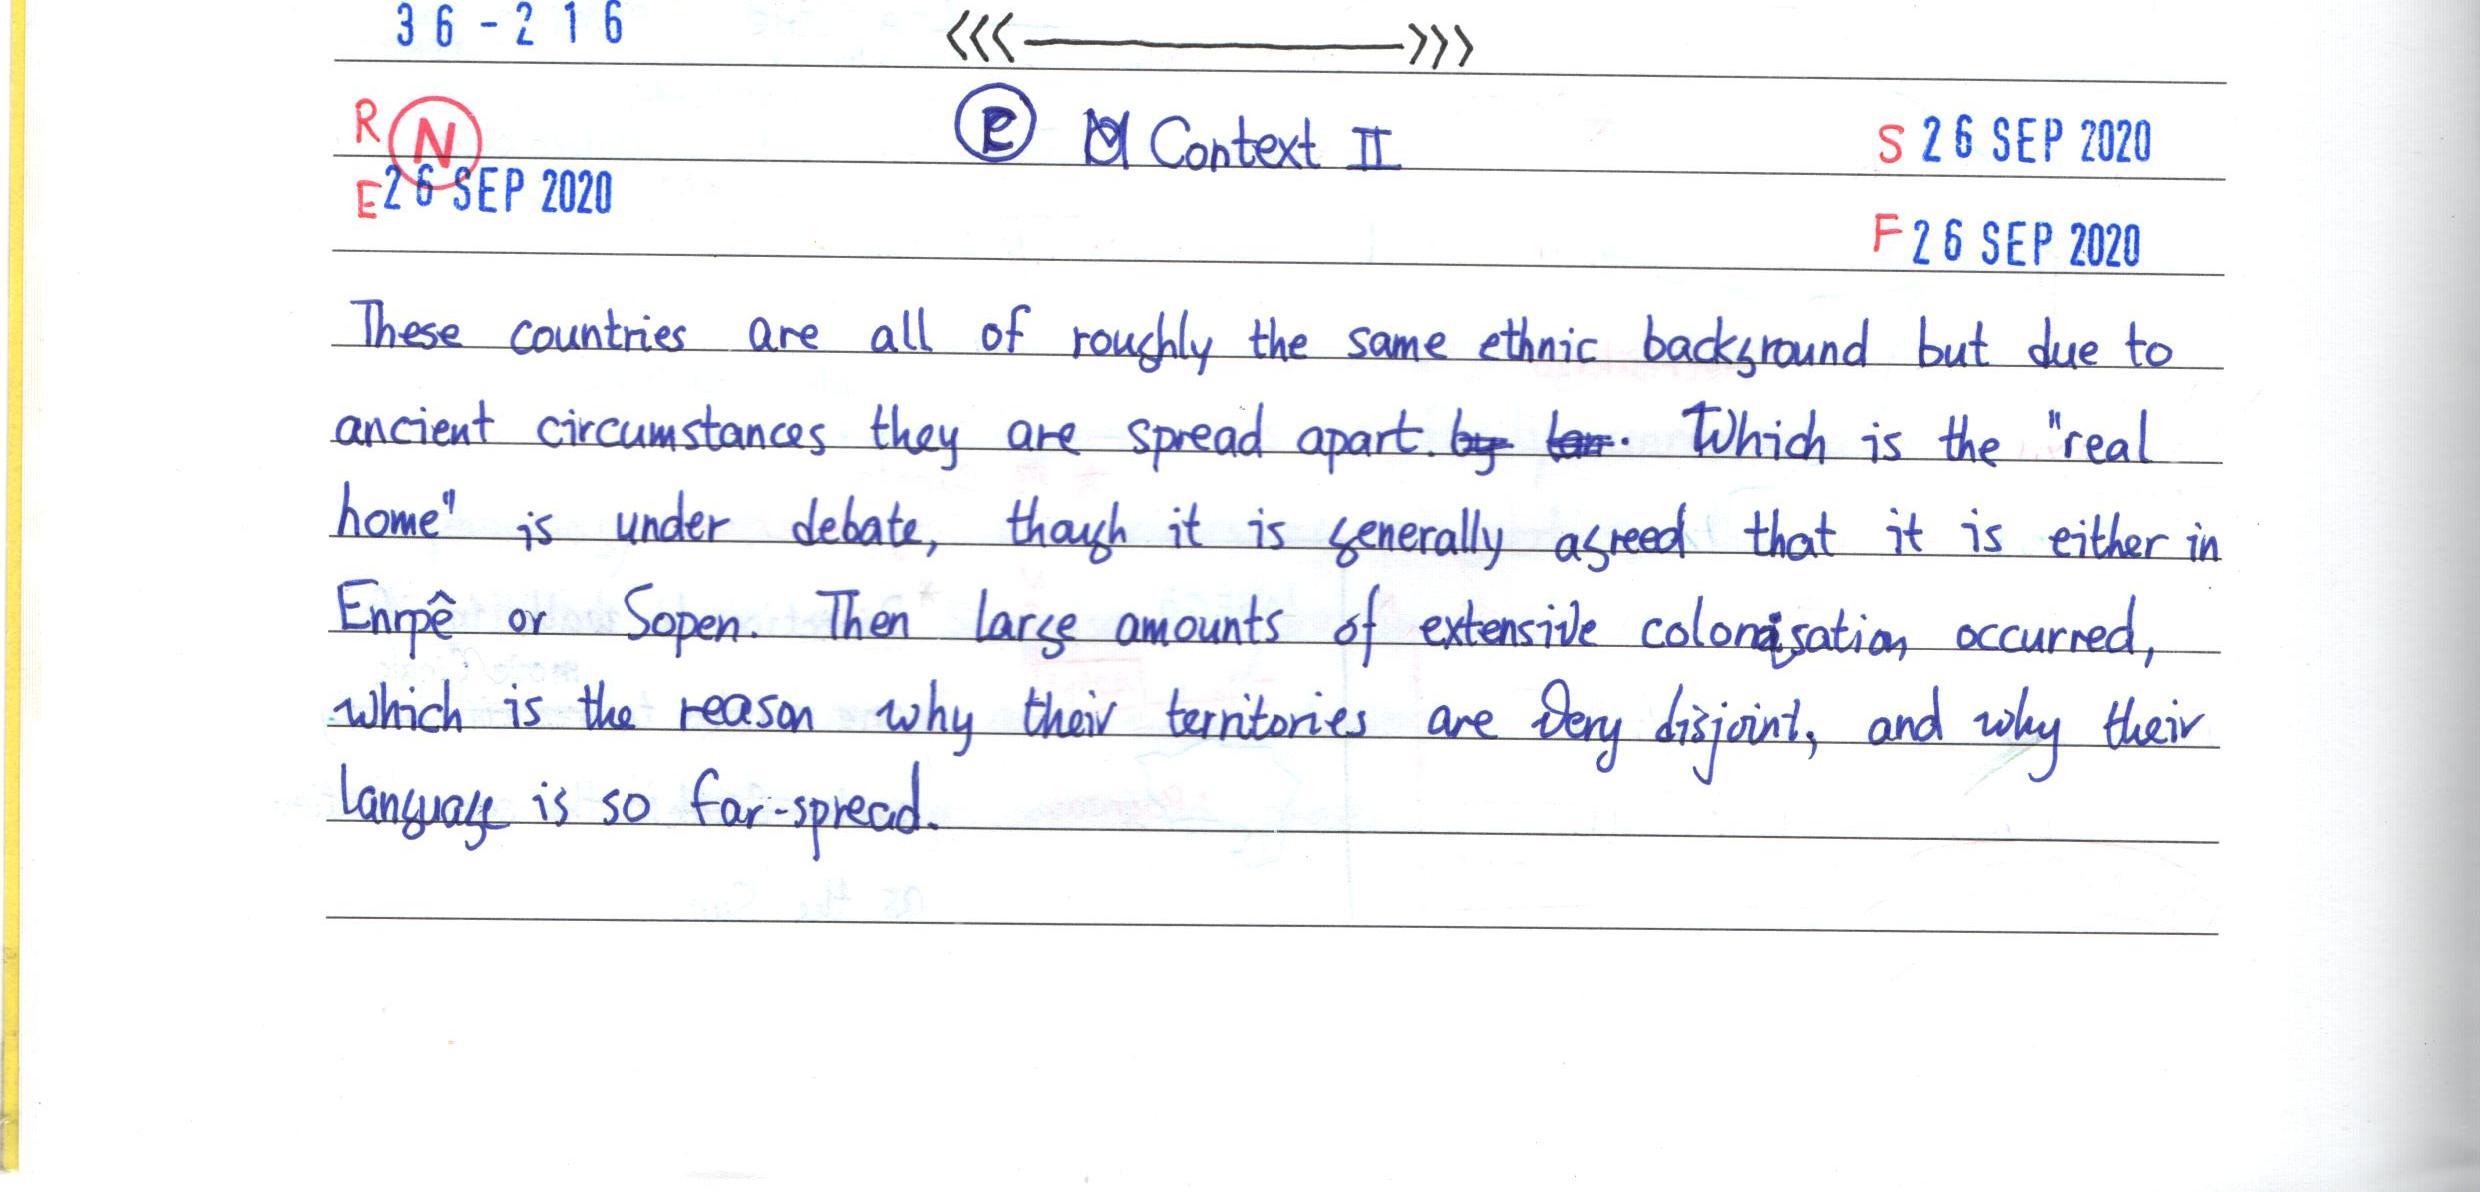 36-216 <<< >>>
R N P Context II S 26 SEP 2020
E 26 SEP 2020
F 26 SEP 2020
These countries are all of roughly the same ethnic background but due to
ancient circumstances they are spread apart. by far. Which is the "real
home" is under debate, though it is generally agreed that it is either in
Enrpê or Sopen. Then large amounts of extensive colonisation occurred,
which is the reason why their territories are very disjoint, and why their
language is so far-spread.